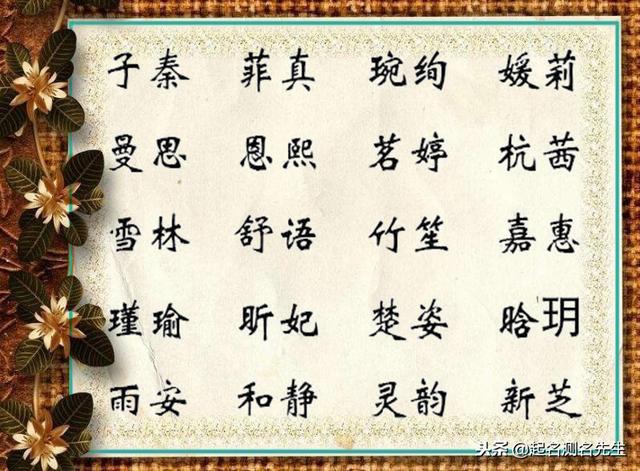 子秦 菲真 琬绚 媛莉
曼思 恩熙 茗婷 杭茜
雪林 舒语 竹笙 嘉惠
瑾瑜 昕妃 楚姿 晗玥
雨安 和静 灵韵 新芝
头条@起名测名先生